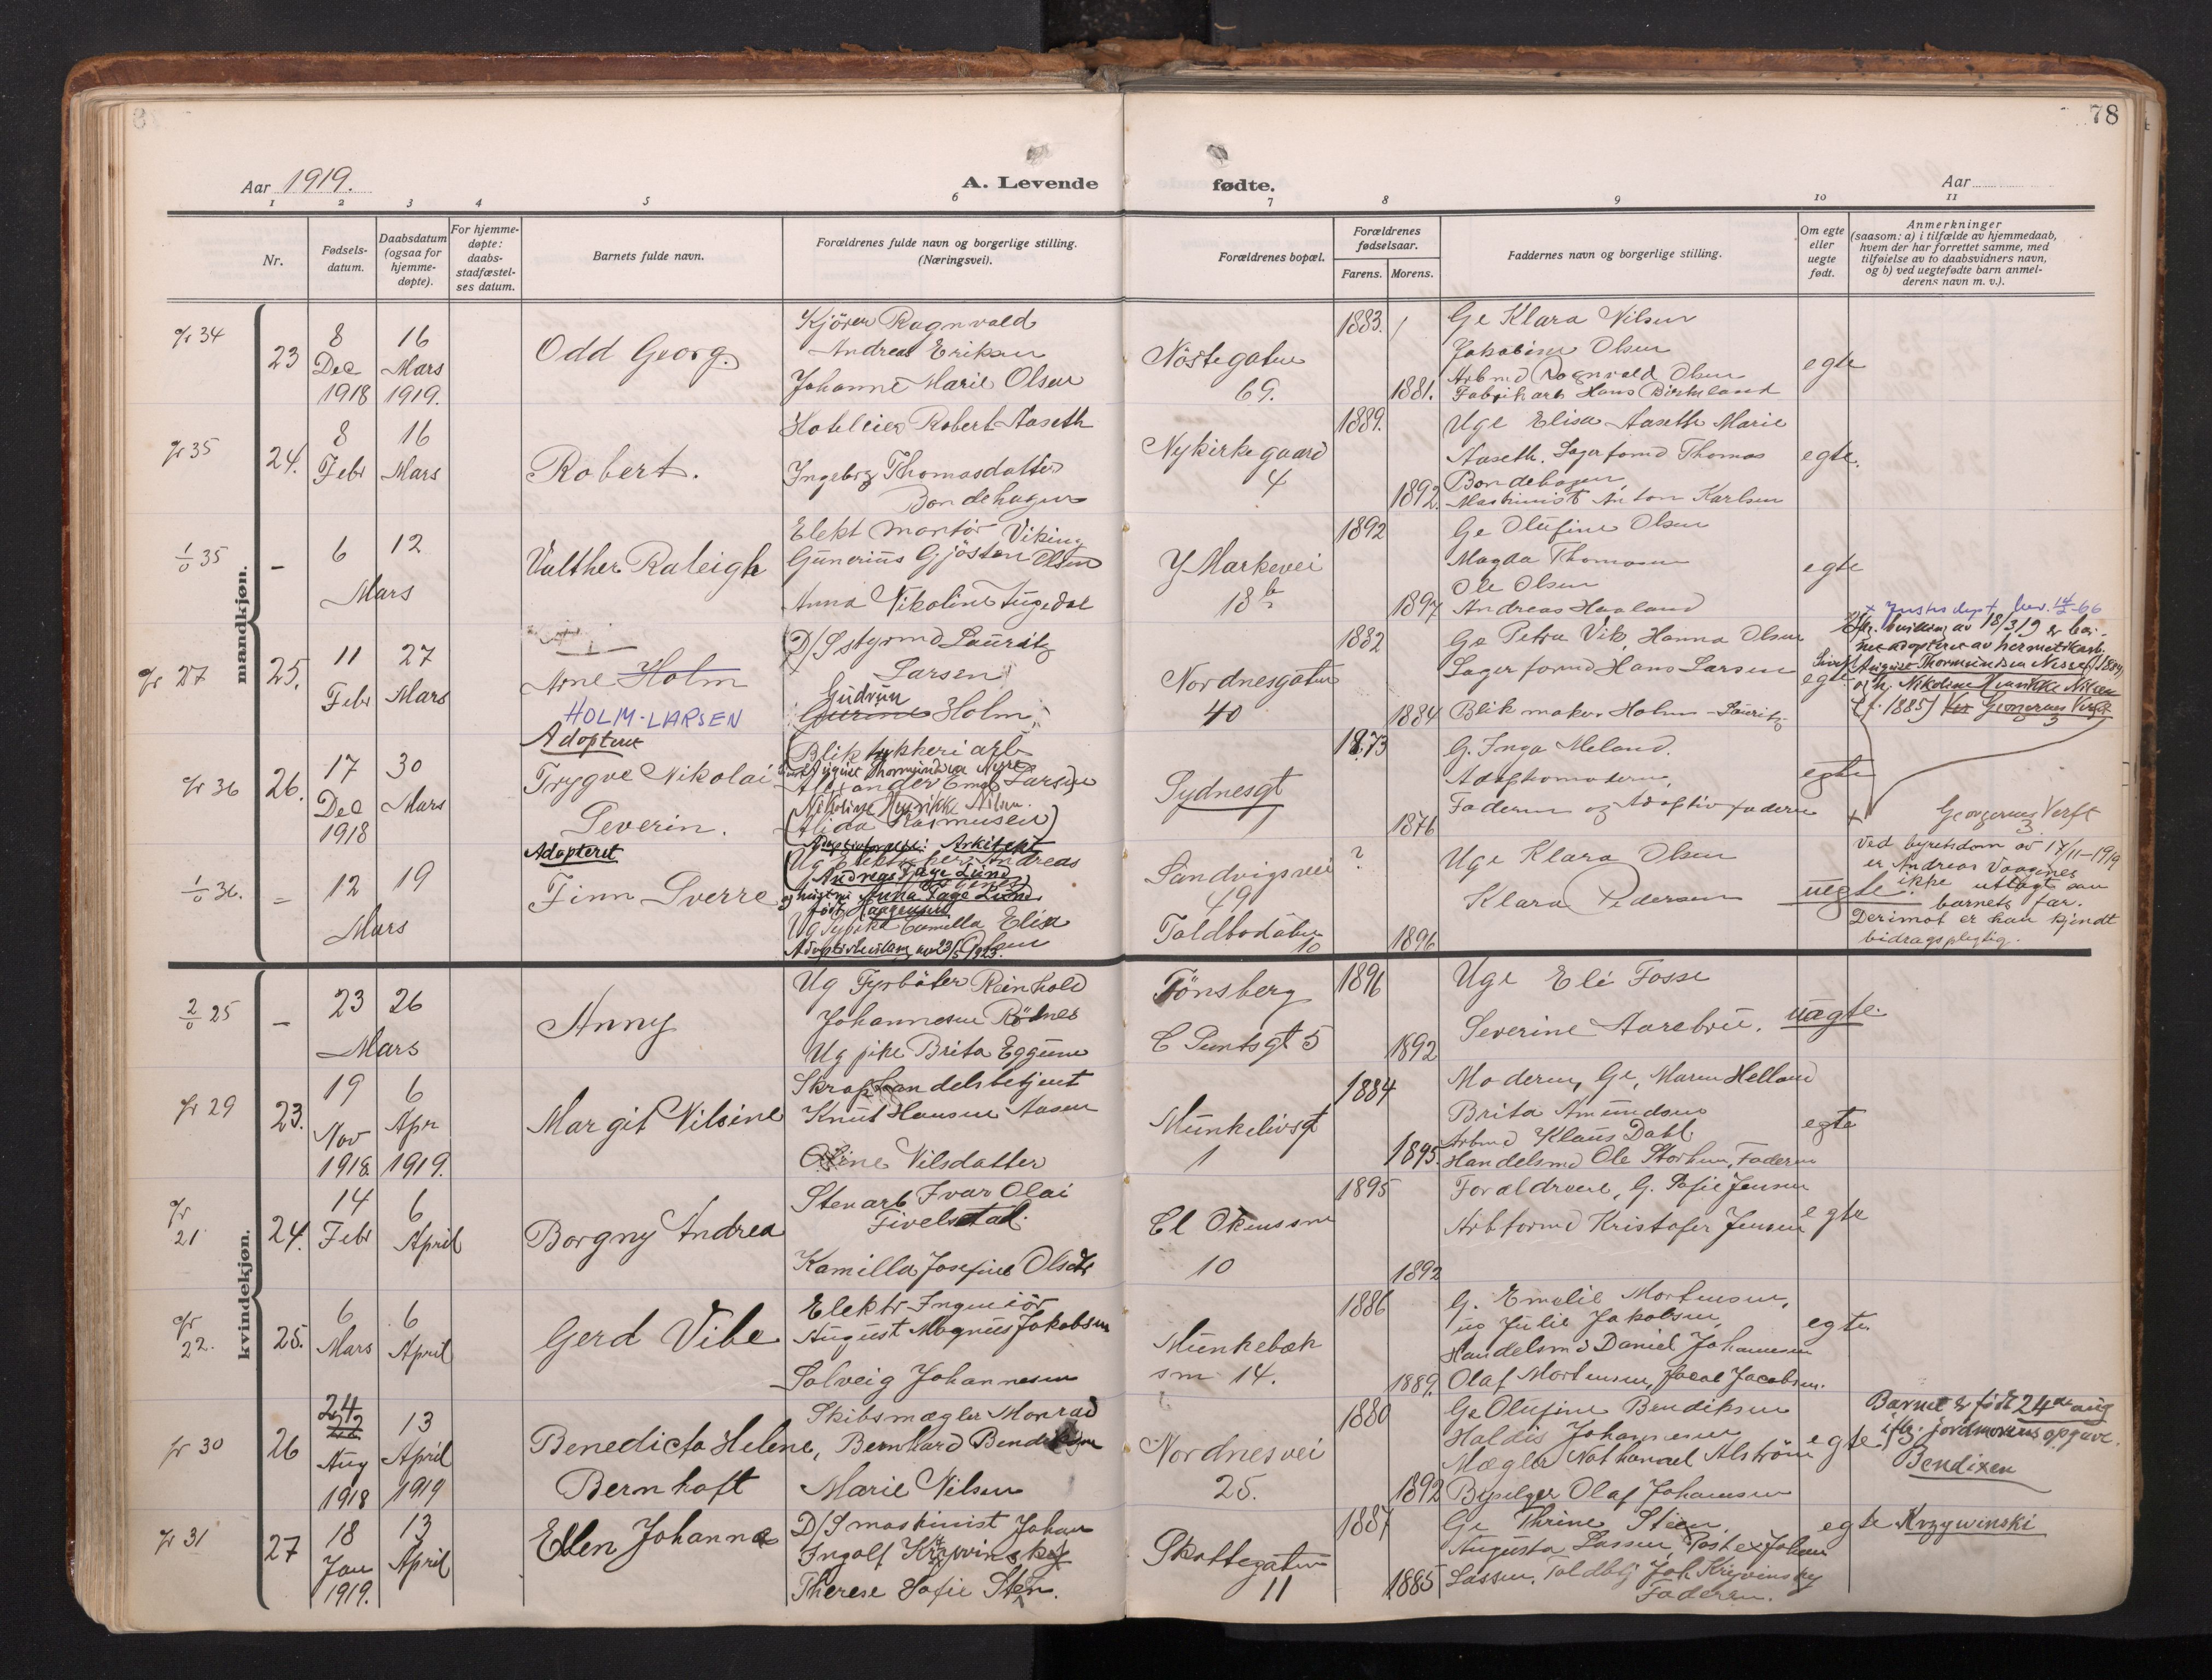 78
Aar 1919.
A. Levende
fødte.
Aar
1 2 3 4 5 6 7 8 9 10 11
Nr.
Fødsels-
datum.
Daabsdatum
(ogsaa for
hjemme-
døpte).
For hjemme-
døpte:
daabs-
stadfæstel-
ses datum.
Barnets fulde navn.
Forældrenes fulde navn og borgerlige stilling.
(Næringsvei).
Forældrenes bopæl.
Forældrenes
fødselsaar.
Farens. Morens.
Faddernes navn og borgerlige stilling.
Om egte
eller
uegte
født.
Anmerkninger
(saasom: a) i tilfælde av hjemmedaab,
hvem der har forrettet samme, med
tilføielse av to daabsvidners navn,
og b) ved uegtefødte barn anmel-
derens navn m. v.).
mandkjøn.
34
23
8
Dec
1918
16
Mars
1919.
Odd Georg.
Kjörer Ragnvald
Andreas Eriksen
Johanne Marie Olsen
Nöstegaten
69.
1883.
1881.
Ge Klara Nilsen
Jakobine Olsen
Arbmd Ragnvald Olsen
Fabrikarb Hans Birkeland
egte
35
24.
8
Febr
16
Mars
Robert.
Hoteleier Robert Aaseth
Ingeborg Thomasdatter
Bondehagen
Nykirkegaard
4
1889.
1892.
Uge Elisa Aaseth Marie
Aaseth. Lagerformd Thomas
Bondehagen,
Maskinist Anton Karlsen
egte.
35
6
12
Mars
Valther Raleigh
Elekt montör Viking
Gunerius Gjösten Olsen
Anna Nikoline Tugedal
Y Markevei
18b
1892
1897
Ge Olufine Olsen
Magda Thomasen
Ole Olsen
Andreas Haaland
egte
27
25.
11
Febr
27
Mars
Arne Holm
HOLM-LARSEN
D/S styrmd Lauritz
Larsen
Gudrun
Holm
Nordnesgaten
40
1882
1884
Ge Petra Vik, Hanna Olsen
Lagerformd Hans Larsen
Blikmaker Holm-Lauritz
egte
August Thormundsen Nesse
Nikoline Henrikke Nilsen
(f. 1885) Georgernes Verft
3
36
26.
17
Dec
1918
30
Mars
Adopteret
Trygve Nikolai
Severin.
Bliktrykkeriarb
August Thormundsen Nesse
Alexander Emil Larsen
Nikoline Henrikke Nilsen.
(Alida Rasmussen)
Sydnesgt
1873
1876
G. Inga Meland.
Adoptivmoderen,
Faderen og Adoptivfaderen
egte
Georgernes Verft
3
36.
12
19
Mars
Adopteret
Finn Sverre
Arkitekt
Andreas
Andreas Tage Lund
Anna Tage Lund
Camilla Elisa
Olsen
Sandvigsveien
49
Toldbodalm
10
?
1896
Uge Klara Olsen
Klara Pedersen
uegte
Ved byretsdom av 17/11-1919
er Andreas Vaagenes
ikke utlagt som
barnets far.
Derimot er han kjendt
bidragspligtig.
kvindekjøn.
25
23
26
Mars
Anny
Ug Fyrböter Reinhold
Johannesen Rödnes
Ug pike Brita Eggum
Tönsberg
C Sundtsgt 5
1896
1892
Uge Eli Fosse
Severine Aarebru.
uægte.
29
23.
19
Nov
1918.
6
Apr
1919.
Margit Nilsine
Skraphandelsbetjent
Knut Hansen Aasen
Nilsdatter
Munkelivsgt
1
1884
1895.
Moderen, Ge, Maren Helland
Brita Amundsen
Arbmd Klaus Dahl
Handelsmd Ole Storhun, Faderen
egte
21
24.
14
Febr
6
April
Borgny Andrea
Stenarb Ivar Olai
Fivelstad.
Kamilla Josefine Olsdtr
Cl Okenssm
10
1895
1892
Forældrene, G. Sofie Jensen
Arbformd Kristofer Jensen
egte
22.
25.
6
Mars
6
April
Gerd Vibe
Elektr Ingeniör
August Magnus Jakobsen
Solveig Johannesen
Munkebæk
sm 14.
1886
1889.
G. Emelie Mortensen,
ug Julie Jakobsen,
Handelsmd Daniel Johannesen
Olaf Mortensen, Jacob Jacobsen.
egte
30
26
24
Aug
1918
13
April
1919
Benedicta Helene,
Bernhoft
Skibsmægler Monrad
Bernhard Bendiksen
Marie Nilsen
Nordnesvei
25.
1880
1892
Ge Olufine Bendiksen
Haldis Johannesen
Mægler Nathanael Alström
Byselger Olaf Johannesen
egte
Barnet er født 24de aug
iflg. jordmorens opgave.
Bendixen
31
27
18
Jan
1919.
13
April
Ellen Johanna
D/S maskinist Johan
Ingolf Krzywinskij
Therese Sofie Sten.
Skottegaten
11
1887
1885
Ge Thrine Steen
Augusta Lassen, Postex Johan
Lassen, Toldbtj Joh. Krzyvinsky
Faderen.
egte
Krzywinski